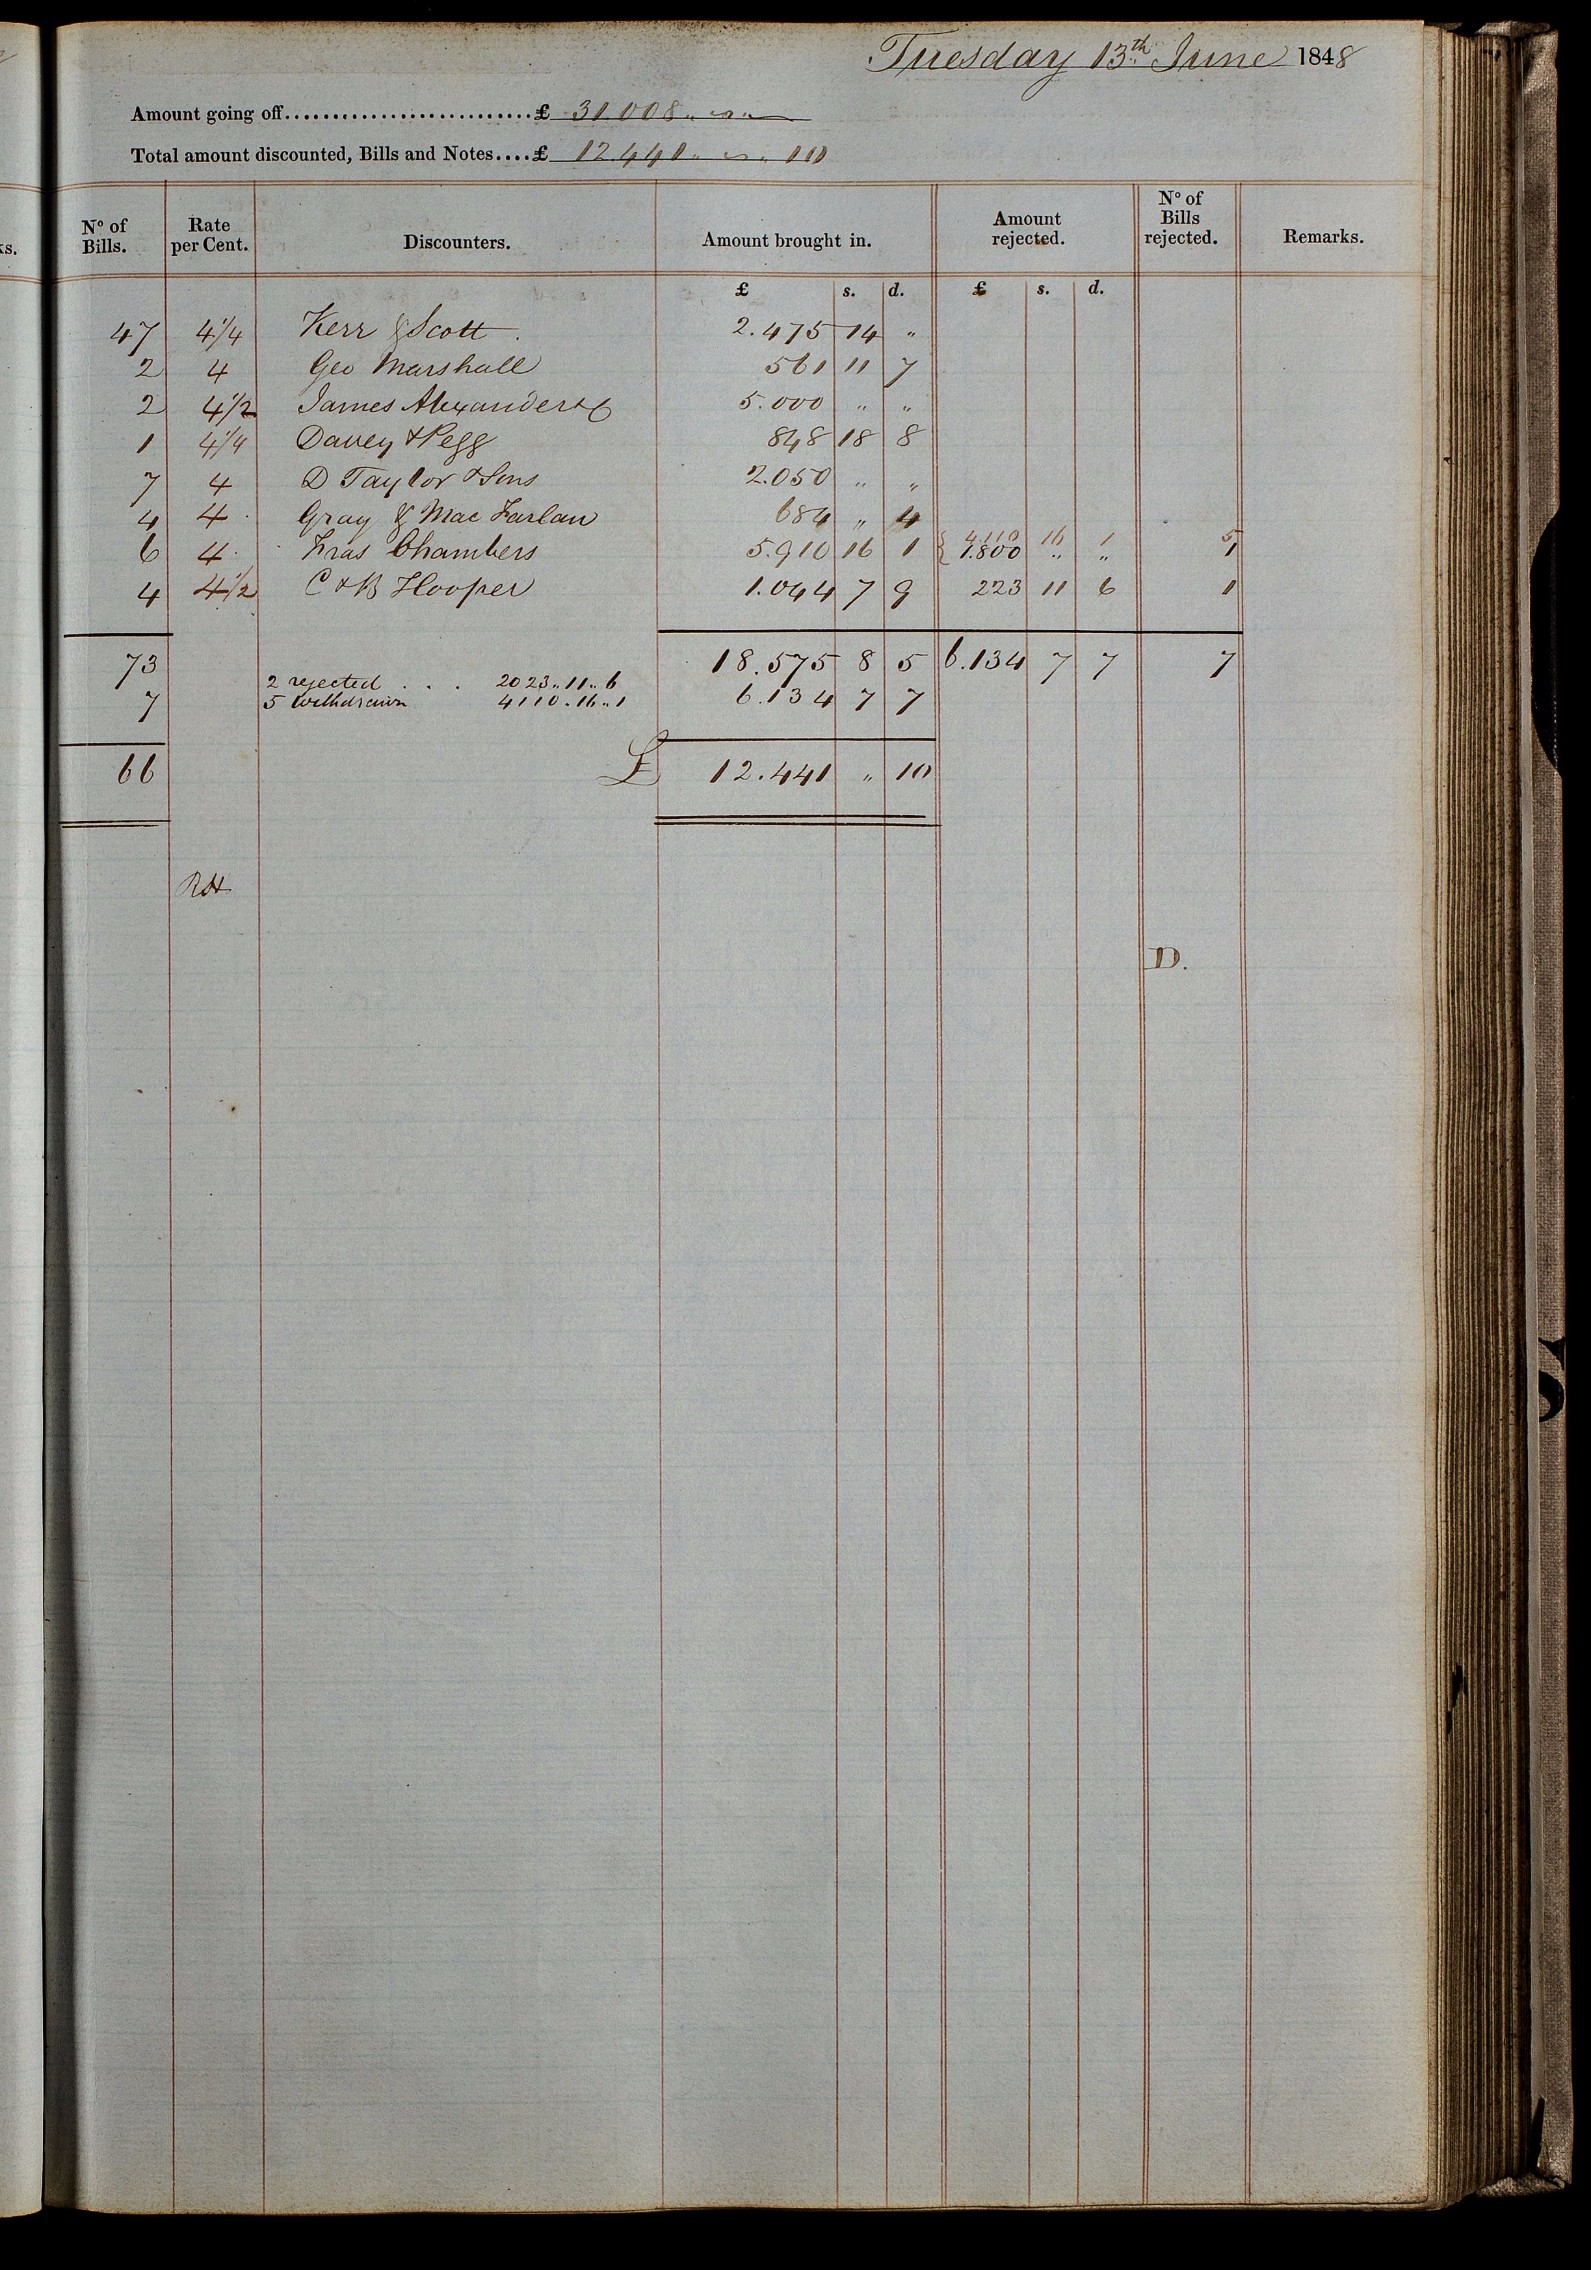 Tuesday 13th June 1848
Amount going off...........................£ 31.008 " " "
Total amount discounted, Bills and Notes....£ 12.441 " " " 10
ks. No of Bills. Rate per Cent. Discounters. Amount brought in. Amount rejected. No of Bills rejected. Remarks.
£ s. d. £ s. d.
47 4 1/4 Kerr & Scott 2.475 14 "
2 4 Geo Marshall 561 11 7
2 4 1/2 James Alexander & C 5.000 " "
1 4 1/4 Davey & Pegg 848 18 8
7 4 D Taylor & Sons 2.050 " "
4 4 Gray & Mac Farlan 684 " 4
6 4 Fras Chambers 5.910 16 1 { 4.110 16 1 5
1.800 " " 1
4 4 1/2 C & B Hooper 1.044 7 9 223 11 6 1
73 18.575 8 5 6.134 7 7 7
2 rejected . . . 2023 " 11 " 6
7 5 Withdrawn 4110 . 16 " 1 6.134 7 7
66 £ 12.441 " 10
RH
D.